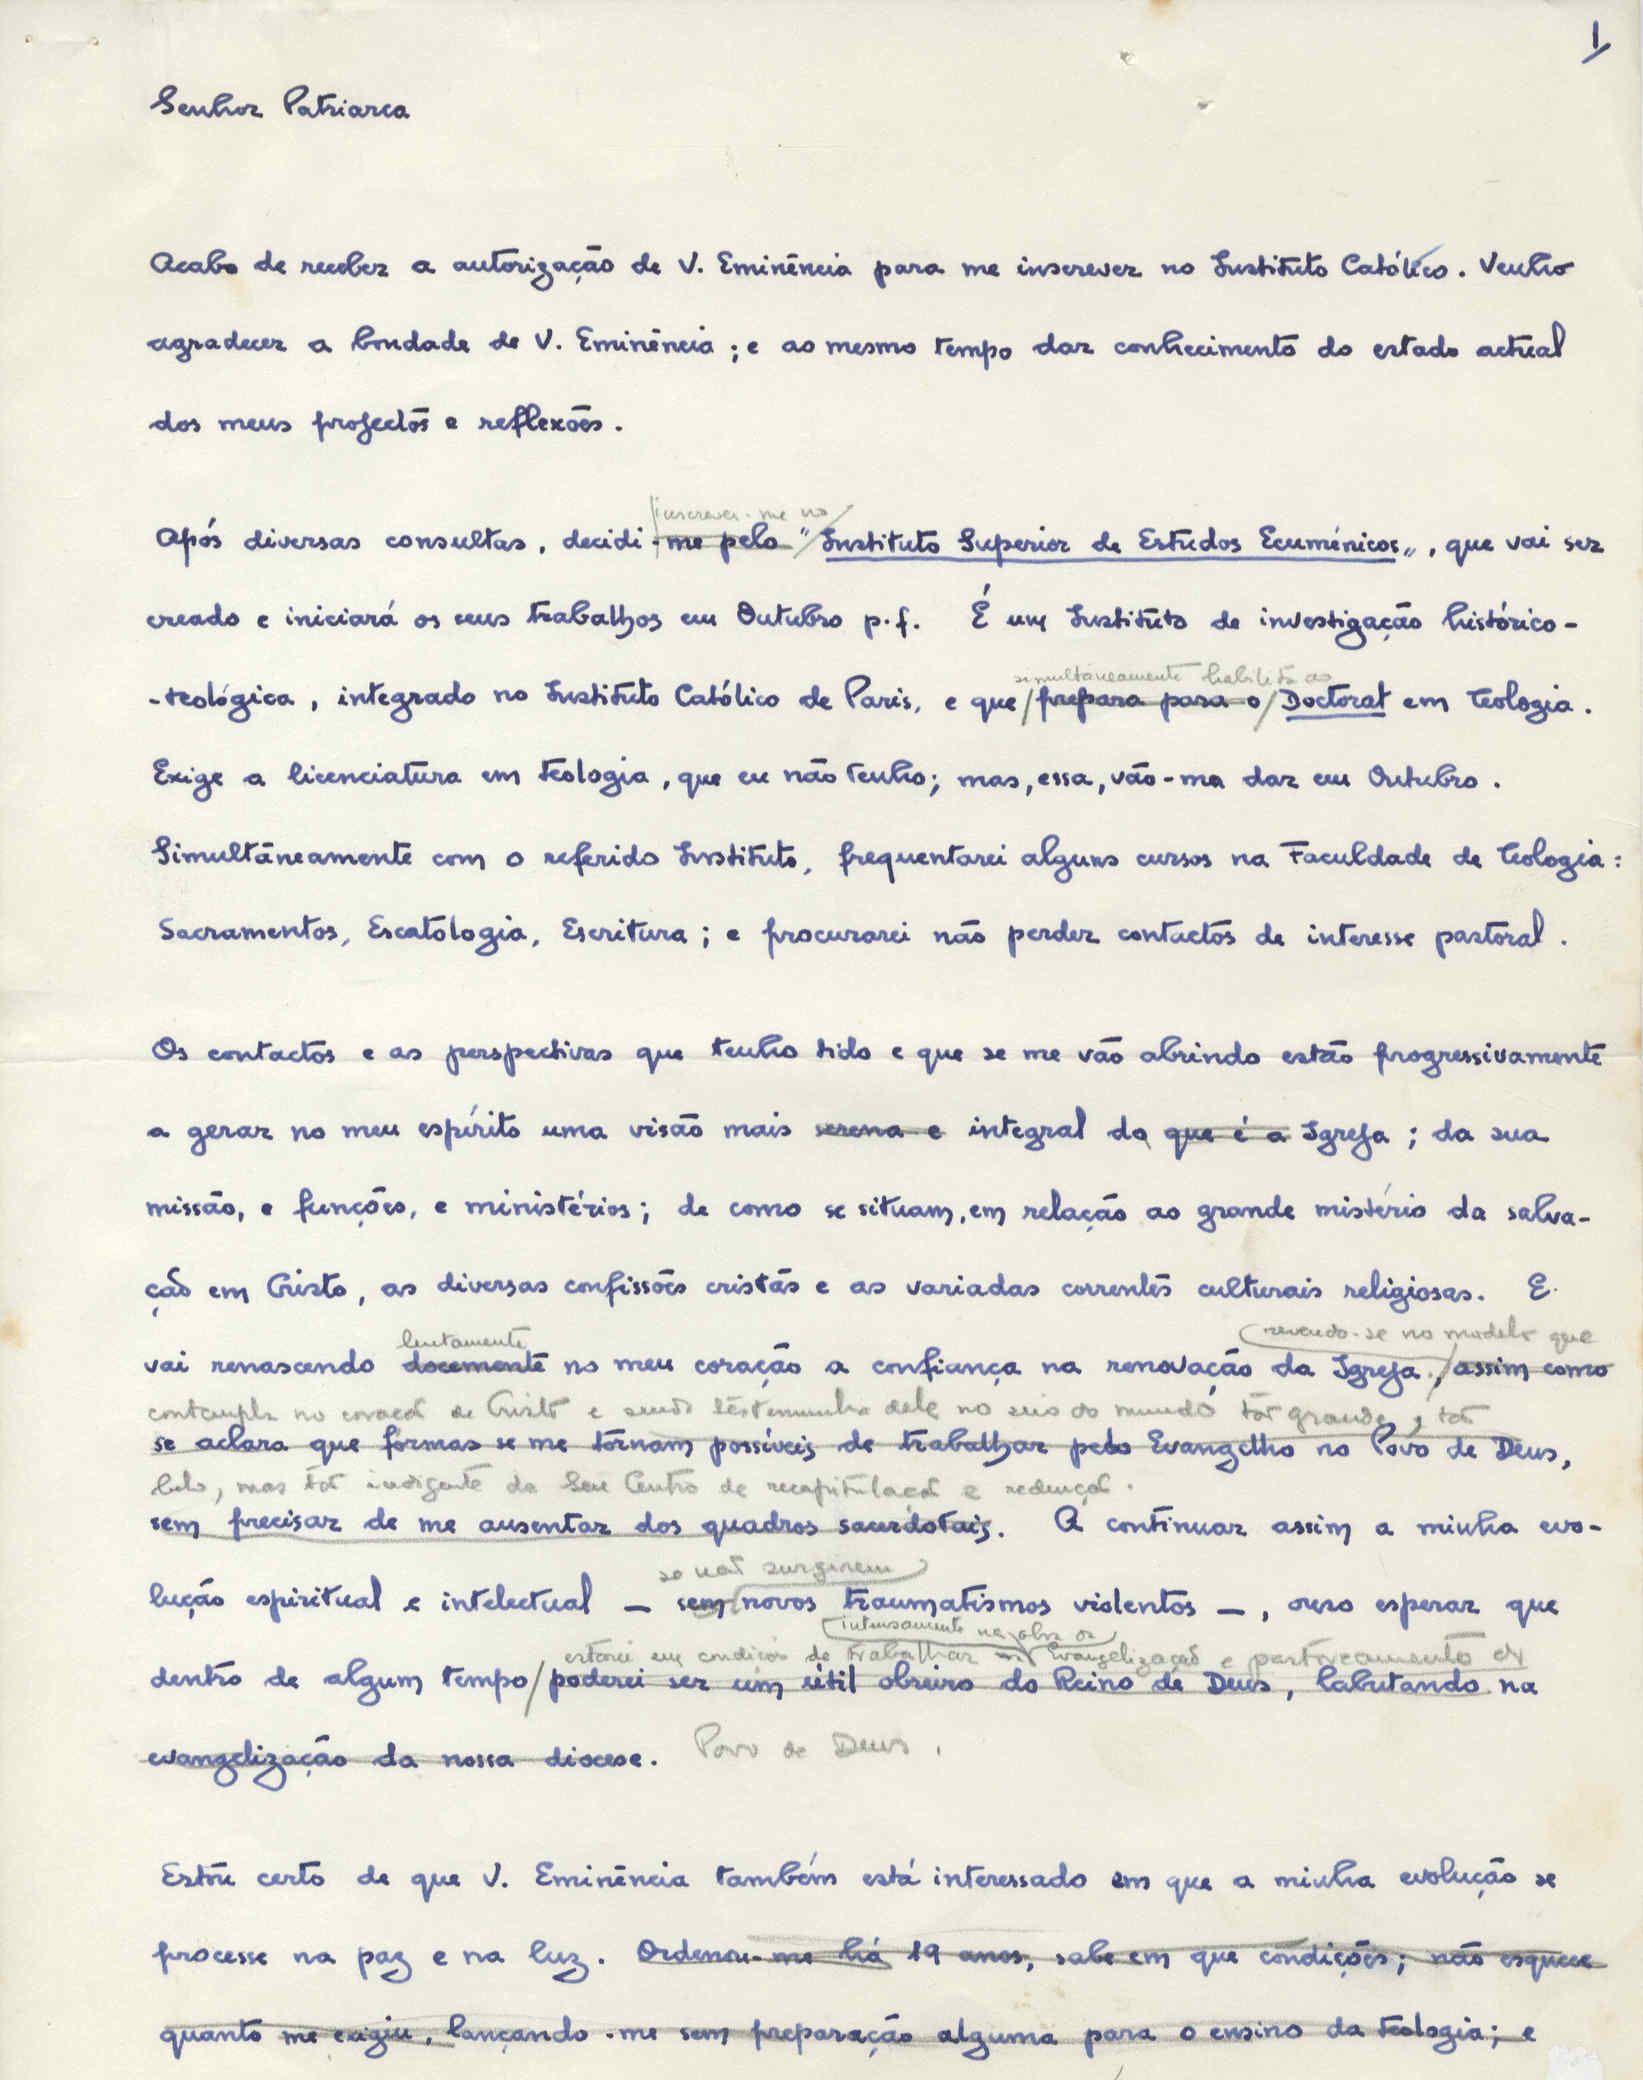 1
Senhor Patriarca
Acabo de receber a autorização de V. Eminência para me inscrever no Instituto Católico. Venho
agradecer a bondade de V. Eminência; e ao mesmo tempo dar conhecimento do estado actual
dos meus projectos e reflexões.
inscrever-me no
Após diversas consultas, decidi-me pelo "Instituto Superior de Estudos Ecuménicos", que vai ser
creado e iniciará os seus trabalhos em Outubro p.f. É um Instituto de investigação histórico-
simultâneamente habilita ao
-teológica, integrado no Instituto Católico de Paris, e que prepara para o Doctorat em Teologia.
Exige a licenciatura em teologia, que eu não tenho; mas, essa, vão-ma dar em Outubro.
Simultâneamente com o referido Instituto, frequentarei alguns cursos na Faculdade de Teologia:
Sacramentos, Escatologia, Escritura; e procurarei não perder contactos de interesse pastoral.
Os contactos e as perspectivas que tenho tido e que se me vão abrindo estão progressivamente
a gerar no meu espírito uma visão mais serena e integral do que é a Igreja; da sua
missão, e funções, e ministérios; de como se situam, em relação ao grande mistério da salva-
ção em Cristo, as diversas confissões cristãs e as variadas correntes culturais religiosas. E
lentamente revendo-se no modelo que
vai renascendo docemente no meu coração a confiança na renovação da Igreja, assim como
contempla no coração de Cristo e sendo testemunha dele no seio do mundo tão grande e tão
se aclara que formas se me tornam possíveis de trabalhar pelo Evangelho no Povo de Deus,
belo, mas tão indigente do Seu Centro de recapitulação e redenção.
sem precisar de me ausentar dos quadros sacerdotais. A continuar assim a minha evo-
se não surgirem
lução espiritual e intelectual — sem novos traumatismos violentos —, ouso esperar que
intensamente na obra da
estarei em condições de trabalhar Evangelização e do
dentro de algum tempo poderei ser um útil obreiro do Reino de Deus, labutando na
evangelização da nossa diocese. Povo de Deus.
Estou certo de que V. Eminência também está interessado em que a minha evolução se
processe na paz e na luz. Ordenou-me há 19 anos, sabe em que condições; não esquece
quanto me exigiu, lançando-me sem preparação alguma para o ensino da teologia; e